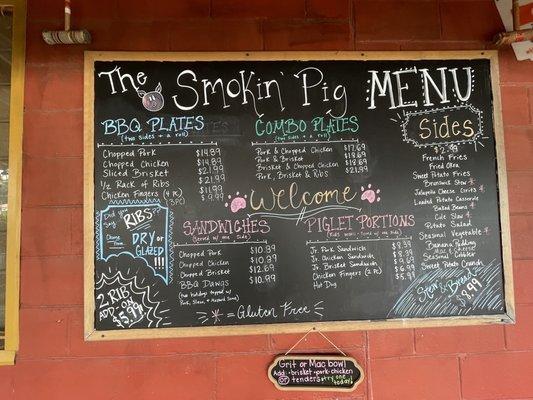 The Smokin' Pig MENU
BBQ PLATES
(two sides)
Chopped Pork $14.89
Chopped Chicken $14.89
Sliced Brisket $21.99
1/2 Rack of Ribs $21.99
Chicken Fingers (4 pc) $11.99
(3pc) $9.99
COMBO PLATES
(two sides)
Pork & Chopped Chicken $17.69
Pork & Brisket $18.69
Brisket & Chopped Chicken $18.69
Pork, Brisket & Ribs $21.99
Sides
$2.99
French Fries
Fried Okra
Sweet Potato Fries
Brunswick Stew
Jalapeño Cheese Grits
Loaded Potato Casserole
Baked Beans
Cole Slaw
Potato Salad
Seasonal Vegetable
Banana Pudding
Mac & Cheese
Seasonal Cobbler
Sweet Potato Crunch
Welcome
RIBS
DRY or
GLAZED!!!
2 RIB
ADD ON
$5.99
SANDWICHES
(Served w/ one side)
Chopped Pork $10.39
Chopped Chicken $10.39
Chopped Brisket $12.69
BBQ Dawgs $10.99
PIGLET PORTIONS
Jr. Pork Sandwich
Jr. Chicken Sandwich
Jr. Brisket Sandwich
Chicken Fingers (2 pc)
Hot Dog
Stew & Bread
$8.99
= Gluten Free
Grit or Mac bowl
Add: brisket • pork • chicken
or tenders try one today!